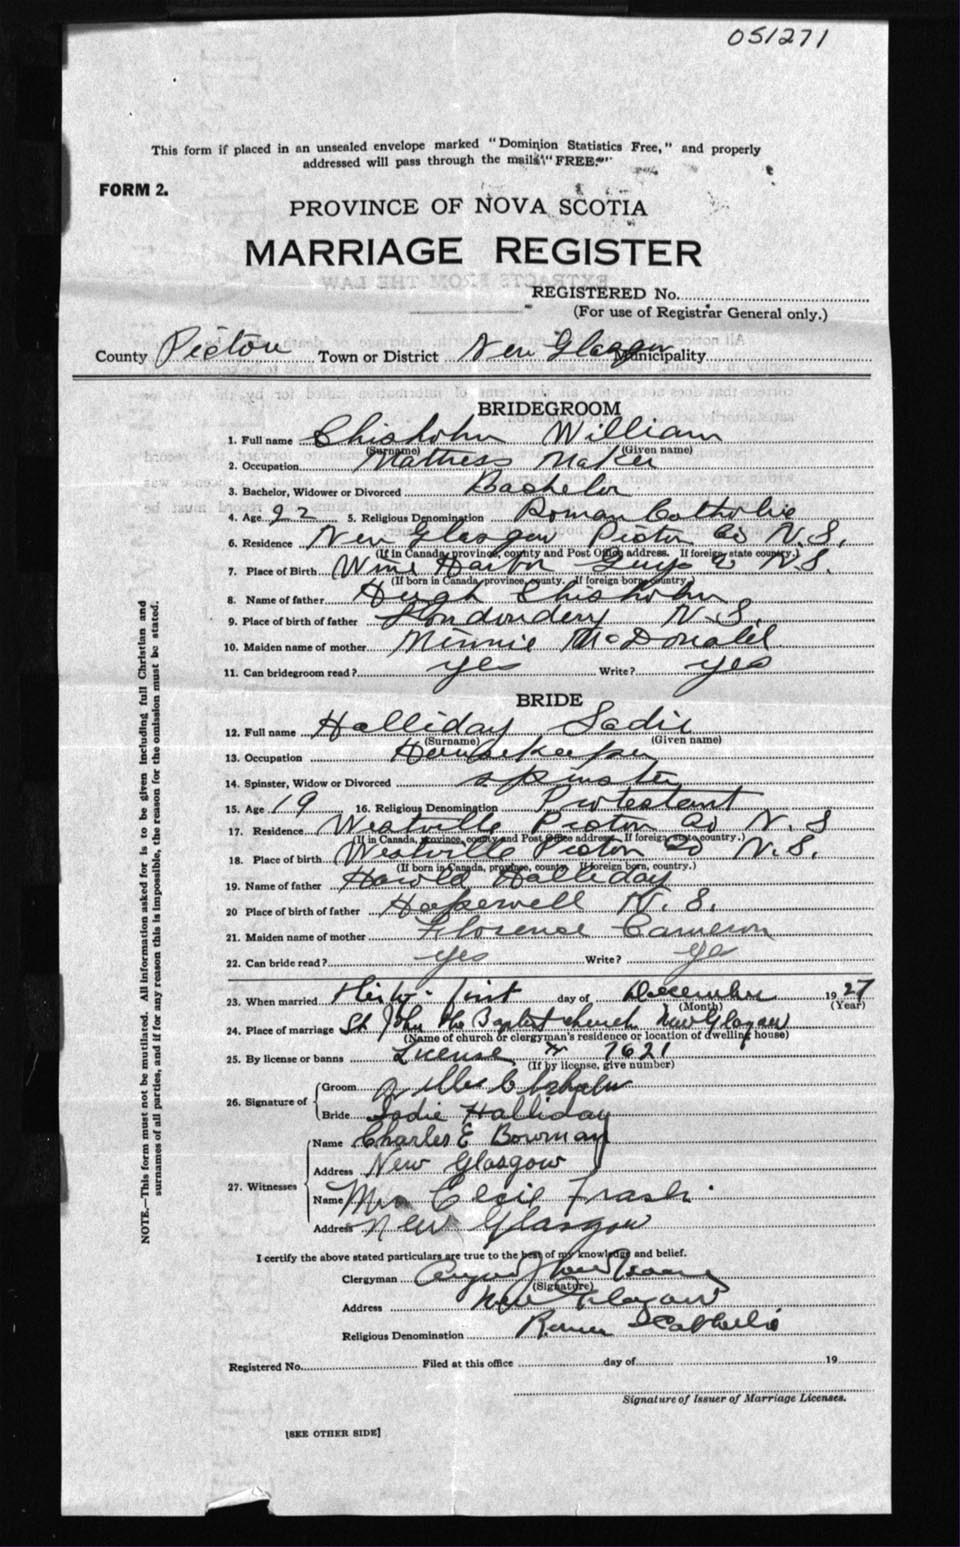 051271
This form if placed in an unsealed envelope marked "Dominion Statistics Free," and properly
addressed will pass through the mails "FREE."
FORM 2.
PROVINCE OF NOVA SCOTIA
MARRIAGE REGISTER
EXTRACTS FROM THE LAW
REGISTERED No.
(For use of Registrar General only.)
County Pictou Town or District New Glasgow Municipality
BRIDEGROOM
1. Full name Chisholm William
(Surname) (Given name)
2. Occupation Mattress Maker
3. Bachelor, Widower or Divorced Bachelor
4. Age 22 5. Religious Denomination Roman Catholic
6. Residence New Glasgow Pictou Co N.S.
(If in Canada, province, county and Post Office address. If foreign state country.)
7. Place of Birth Wine Harbor Guys Co N.S.
(If born in Canada, province, county. If foreign born, country.)
8. Name of father Hugh Chisholm
9. Place of birth of father Londondery N.S.
10. Maiden name of mother Minnie McDonald
11. Can bridegroom read? yes Write? yes
BRIDE
12. Full name Halliday Sadie
(Surname) (Given name)
13. Occupation Housekeeper
14. Spinster, Widow or Divorced spinster
15. Age 19 16. Religious Denomination Protestant
17. Residence Westville Pictou Co N.S
(If in Canada, province, county and Post Office address. If foreign state country.)
18. Place of birth Westville Pictou Co N.S.
(If born in Canada, province, county. If foreign born, country.)
19. Name of father Harold Halliday
20 Place of birth of father Hopewell N.S.
21. Maiden name of mother Florence Cameron
22. Can bride read? yes Write? yes
23. When married Thirty-first day of December 1927
(Month) (Year)
24. Place of marriage St John the Baptist church New Glasgow
(Name of church or clergyman's residence or location of dwelling house)
25. By license or banns License # 7621
(If by license, give number)
26. Signature of Groom Chisholm
Bride Sadie Halliday
27. Witnesses Name Charles E Bowman
Address New Glasgow
Name Mrs
Address New Glasgow
I certify the above stated particulars are true to the best of my knowledge and belief.
Clergyman
(Signature)
Address New Glasgow
Religious Denomination Roman Catholic
Registered No. Filed at this office day of 19
Signature of Issuer of Marriage Licenses.
[SEE OTHER SIDE]
NOTE.—This form must not be mutilated. All information asked for is to be given including full Christian and
surnames of all parties, and if for any reason this is impossible, the reason for the omission must be stated.